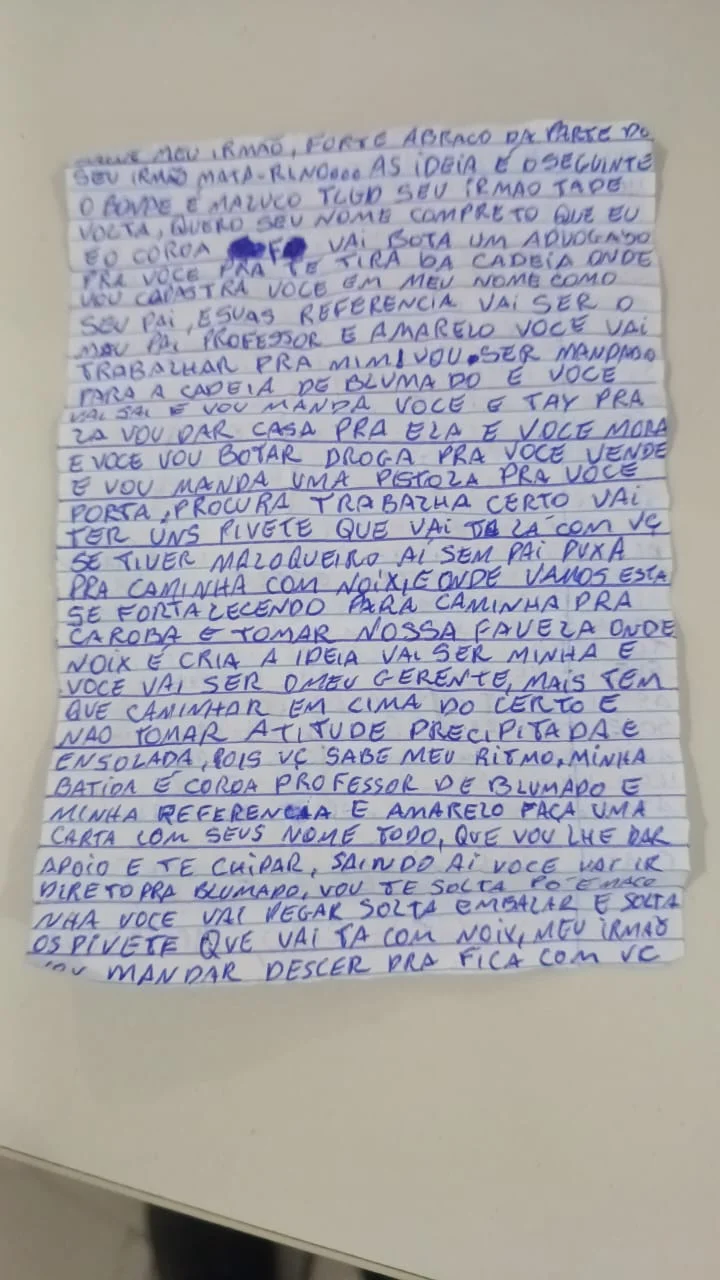 SALVE MEU IRMÃO, FORTE ABRAÇO DA PARTE DO
SEU IRMÃO MATA-RINDOOO AS IDEIA É O SEGUINTE
O BONDE É MALUCO TLGD SEU IRMÃO TA DE
VOLTA, QUERO SEU NOME COMPRETO QUE EU
E O COROA VAI BOTA UM ADVOGADO
PRA VOCE PRA TE TIRA DA CADEIA ONDE
VOU CADASTRA VOCE EM MEU NOME COMO
SEU PAI, E SUAS REFERENCIA VAI SER O
MEU PAI PROFESSOR E AMARELO VOCE VAI
TRABALHAR PRA MIM, VOU SER MANDADO
PARA A CADEIA DE BLUMADO E VOCE
VAI SAI E VOU MANDA VOCE E TAY PRA
LA VOU DAR CASA PRA ELA E VOCE MORA
E VOCE VOU BOTAR DROGA PRA VOCE VENDE
E VOU MANDA UMA PISTOLA PRA VOCE
PORTA, PROCURA TRABALHA CERTO VAI
TER UNS PIVETE QUE VAI TA LA COM VÇ
SE TIVER MALOQUEIRO AÍ SEM PAI PUXA
PRA CAMINHA COM NOIX, E ONDE VAMOS ESTA
SE FORTALECENDO PARA CAMINHA PRA
CAROBA E TOMAR NOSSA FAVELA ONDE
NOIX É CRIA A IDEIA VAI SER MINHA E
VOCE VAI SER O MEU GERENTE, MAIS TEM
QUE CAMINHAR EM CIMA DO CERTO E
NAO TOMAR ATITUDE PRECIPITADA E
ENSOLADA, POIS VÇ SABE MEU RITMO, MINHA
BATIDA É COROA PROFESSOR DE BLUMADO E
MINHA REFERENCIA E AMARELO FAÇA UMA
CARTA COM SEUS NOME TODO, QUE VOU LHE DAR
APOIO E TE CHIPAR, SAINDO AÍ VOCE VAI IR
DIRETO PRA BLUMADO, VOU TE SOLTA PÓ E MACO
NHA VOCE VAI PEGAR SOLTA EMBALAR E SOLTA
OS PIVETE QUE VAI TA COM NOIX, MEU IRMÃO
VOU MANDAR DESCER PRA FICA COM VC